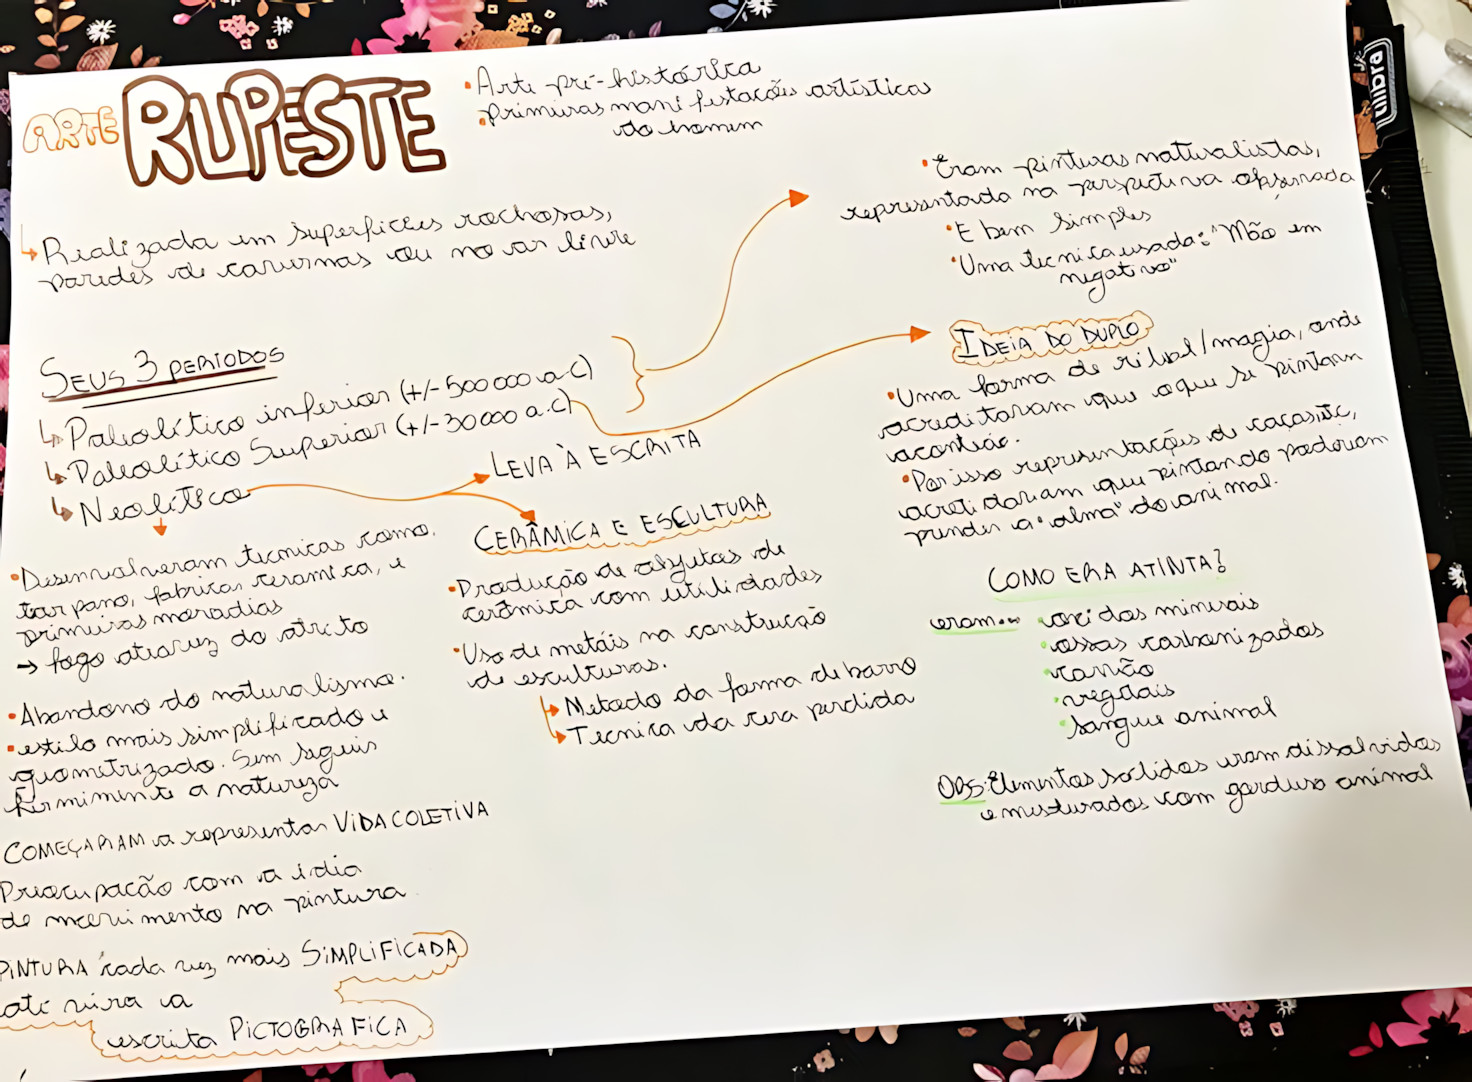 ARTE RUPESTE
• Arte pré-histórica
• primeiras manifestações artísticas
do homem
↳ Realizada em superfícies rochosas,
paredes de cavernas ou no ar livre
SEUS 3 PERIODOS
↳ Paleolítico inferior (+/- 500 000 a.C)
↳ Paleolítico Superior (+/- 30 000 a.C)
↳ Neolítico
• Desenvolveram tecnicas como,
tar pano, fabricar ceramica, e
primeiras moradias
→ fogo atravez do atrito
• Abandono do naturalismo.
• estilo mais simplificado e
geometrizado. Sem seguir
firmimente a natureza
COMEÇARAM a representar VIDA COLETIVA
Preocupacão com a idia
de movimento na pintura
PINTURA cada vez mais SIMPLIFICADA
até vira a
escrita PICTOGRAFICA
LEVA À ESCRITA
CERÂMICA E ESCULTURA
• Produção de objetos de
cerâmica com utilidades
• Uso de metáis na construcão
de esculturas.
↳ Metodo da forma de barro
↳ Tecnica da cera perdida
• Eram pinturas naturalistas,
representada na perspectiva observada
• E bem simples
• Uma tecnica usada: "Mão em
negativo"
IDEIA DO DUPLO
• Uma forma de ritual/magia, onde
acreditavam que o que se pintava
acontecia.
• Por isso representações de caças etc,
acretidavam que pintando poderiam
prender a "alma" do animal.
COMO ERA A TINTA?
eram... • oxidos minerais
• ossos carbonizados
• carvão
• vegetais
• sangue animal
OBS: Elementos solidos eram dissolvidos
e misturados com gordura animal
uniбra